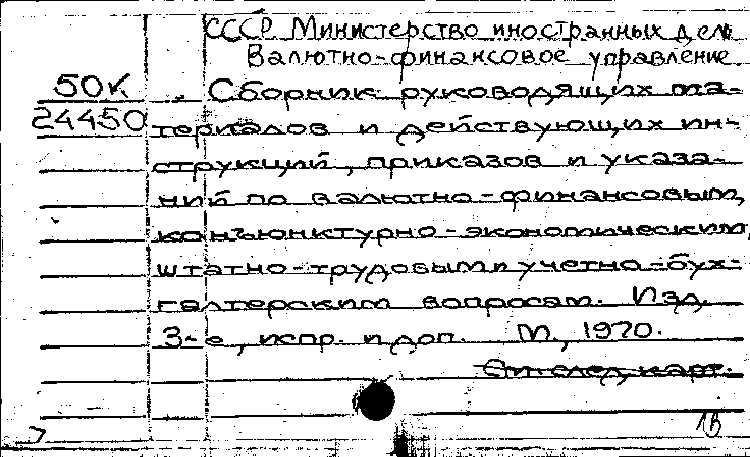 СССР Министерство иностранных дел
Валютно-финансовое управление
50К
24450
Сборник руководящих ма-
териалов и действующих ин-
струкций, приказов и указа-
ний по валютно-финансовым,
конъюнктурно-экономическим,
штатно-трудовым и учетно-бух-
галтерским вопросам. Изд.
3-е, испр. и доп. М., 1970.
См. след. карт.
1В